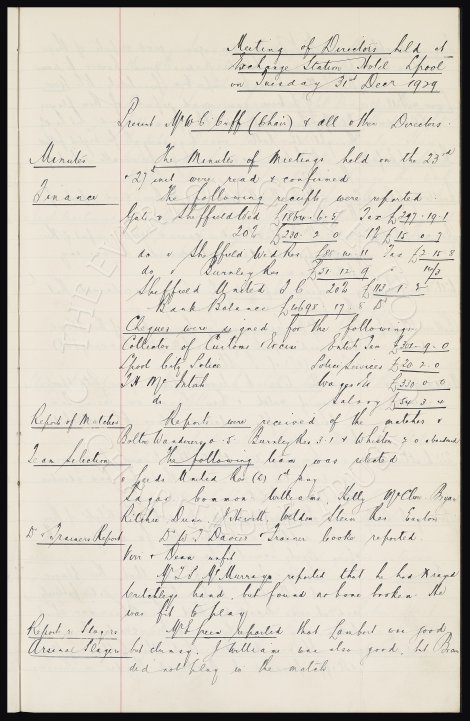 Meeting of Directors held at
Exchange Station Hotel Lpool
on Tuesday 31st Decr 1929
Present Mr W. C. Cuff (Chair) & all other Directors.
Minutes The Minutes of Meetings held on the 23rd
& 27 inst were read & confirmed
Finance The following receipts were reported
Gate v Sheffield Wed £1864. 6. 8 Tax £
20% £ 1% £15. 0. 7
do v Sheffield Wed Res Tax £7 15 8
do v Burnley Res £31. 12. 9
Sheffield United F C 20% £113
Bank Balance Dr
Cheques were signed for the following
Collector of Customs & Excise Entert Tax £ 9. 0
Lpool City Police Police Services £20. 2. 0
T. H. McIntosh Wages &c £350. 0. 0
do Salary £54. 3. 4
Reports of Matches Reports were received of the matches v
Bolton Wanderers 0. 5 Burnley Res 3. 1 & Whiston abandoned
Team Selection The following team was selected
v Leeds United Res (C) 1st Jany
Sagar Common Williams, Kelly McClure Bryan
Ritchie, Dunn, Hewitt, Weldon Stein Res Easton
Dr & Trainers Report Dr & T Davies & Trainer Cooke reported
Kerr & Dean unfit
Mr T. S. McMurray reported that he had X rayed
Critchleys hand, but found no bone broken. He
was fit to play
Report v Players Mr Green reported that Lambert was good
Arsenal Players but clumsy. J William was also good, but
did not play in the match